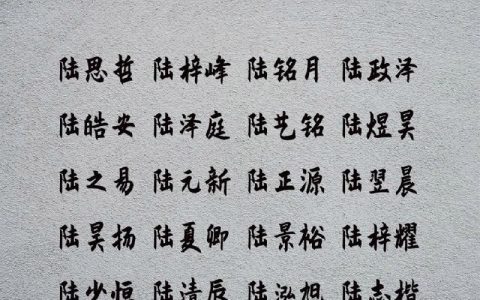 陆思哲 陆梓峰 陆铭月 陆政泽
陆皓安 陆泽庭 陆艺铭 陆煜昊
陆之易 陆元新 陆正源 陆翌晨
陆昊扬 陆夏卿 陆景裕 陆梓耀
陆少恒 陆清辰 陆泓旭 陆志楷